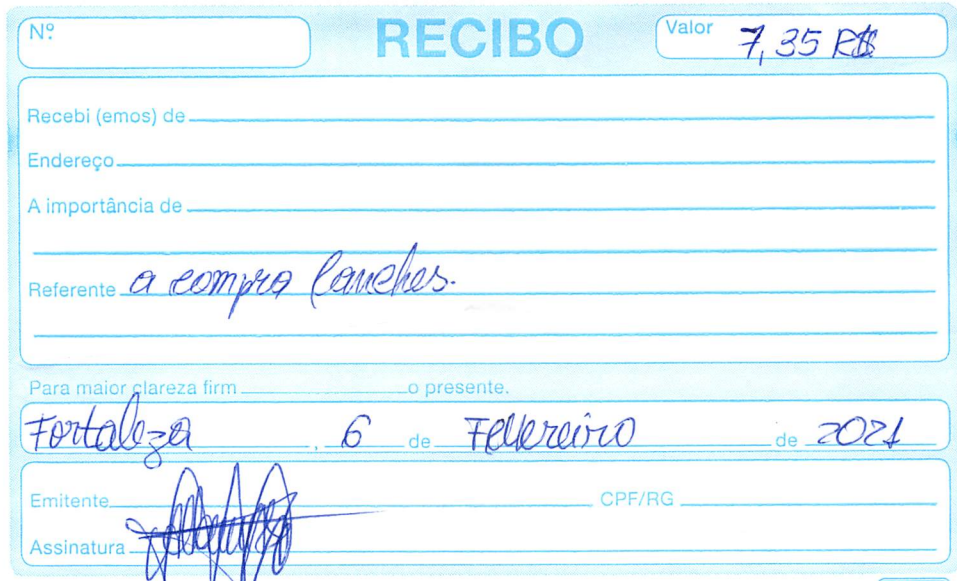 Nº RECIBO Valor 7,35 R$
Recebi (emos) de
Endereço
A importância de
Referente a compra lanches.
Para maior clareza firm o presente.
Fortaleza, 6 de Fevereiro de 2021
Emitente CPF/RG
Assinatura